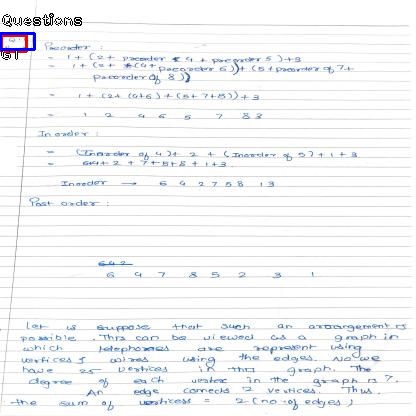 Questions
Q.
GT
Preorder :
= 1 + (2 + preorder 4 + preorder 5) + 3
= 1 + (2 + (4 + preorder 6)) + (5 + preorder of 7 +
preorder of 8))
= 1 + (2 + (4+6) + (5+7+8)) + 3
= 1 2 4 6 5 7 8 3
Inorder :
= (Inorder of 4) + 2 + (Inorder of 5) + 1 + 3
= 6+4+ 2 + 7+5+8 + 1+3
Inorder → 6 4 2 7 5 8 1 3
Post order :
6 4 2
6 4 7 8 5 2 3 1
Let us suppose that such an arrangement is
possible. This can be viewed as a graph in
which telephones are represent using
vertices & wires using the edges. No we
have 25 vertices in this graph. The
degree of each vertex in the graph is 7.
An edge connects 2 vertices. Thus
the sum of vertices = 2 (no. of edges)